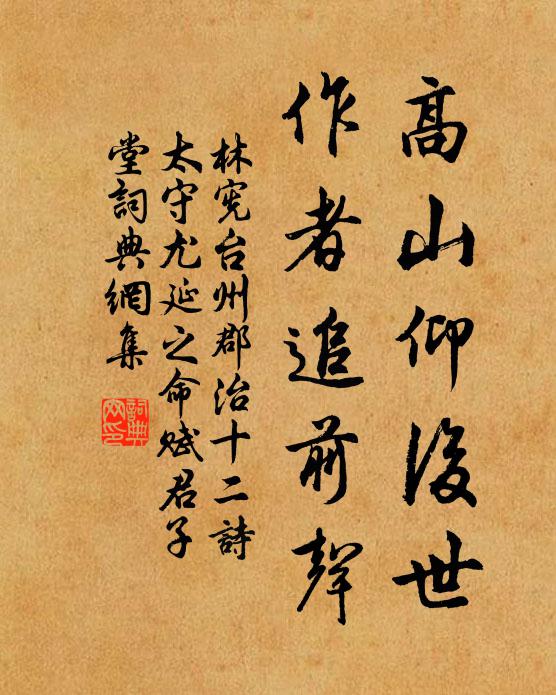 高山仰後世
作者追前聲
林宪台州郡治十二詩
太守尤延之命賦君子
堂詞典網集
詞典
网印